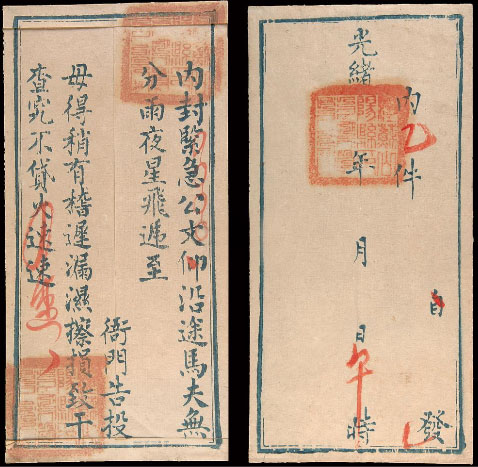 內封緊急公文仰沿途馬夫無
分雨夜星飛遞至
衙門告投
毋得稍有稽遲漏濕擦損致干
查究不貸火速速
內 件
自 發
光緒 年 月 日午時